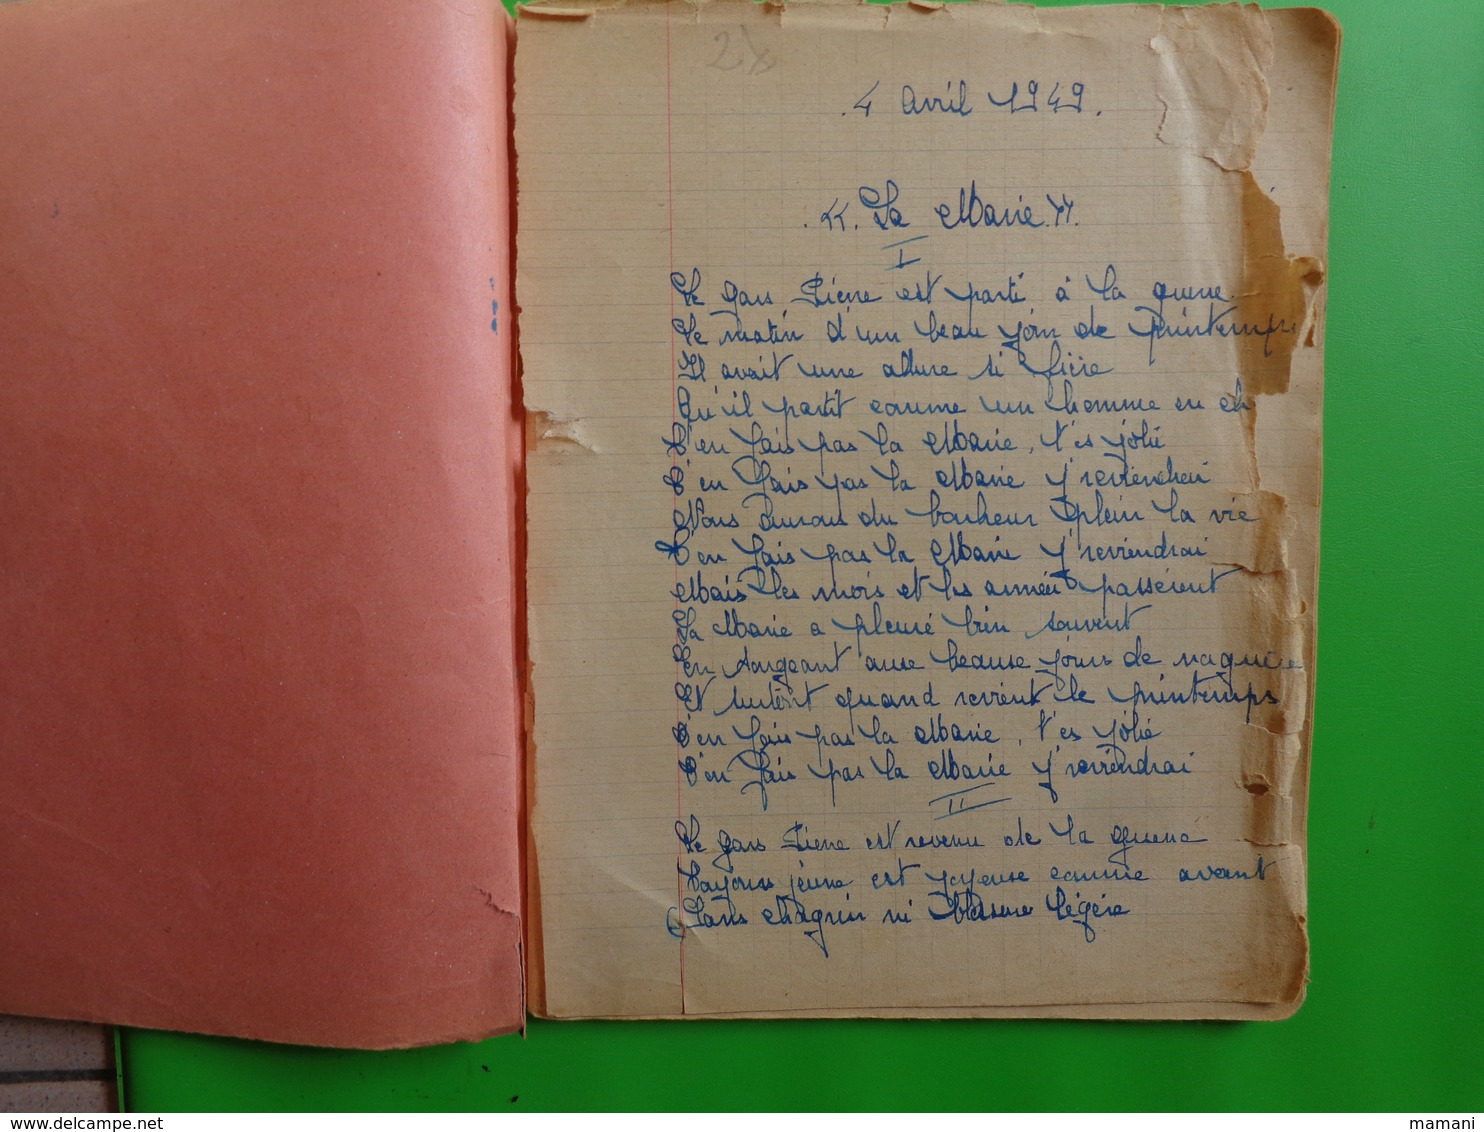 4 avril 1949.
"La Marie".
I
Le gars Pierre est parti à la guerre
Le matin d'un beau jour de printemps
Il avait une allure si fière
Qu'il partit comme un homme en ch
T'en fais pas la Marie, t'es jolie
T'en fais pas la Marie j'reviendrai
Nous aurons du bonheur plein la vie
T'en fais pas la Marie j'reviendrai
Mais les mois et les années passèrent
La Marie a pleuré bien souvent
En songeant aux beaux jours de naguère
Et surtout quand revient le printemps
T'en fais pas la Marie, t'es jolie
T'en fais pas la Marie j'reviendrai
II
Le gars Pierre est revenu de la guerre
Toujours jeune est joyeuse comme avant
Sans chagrin ni blessure légère
www.delcampe.net
mamani